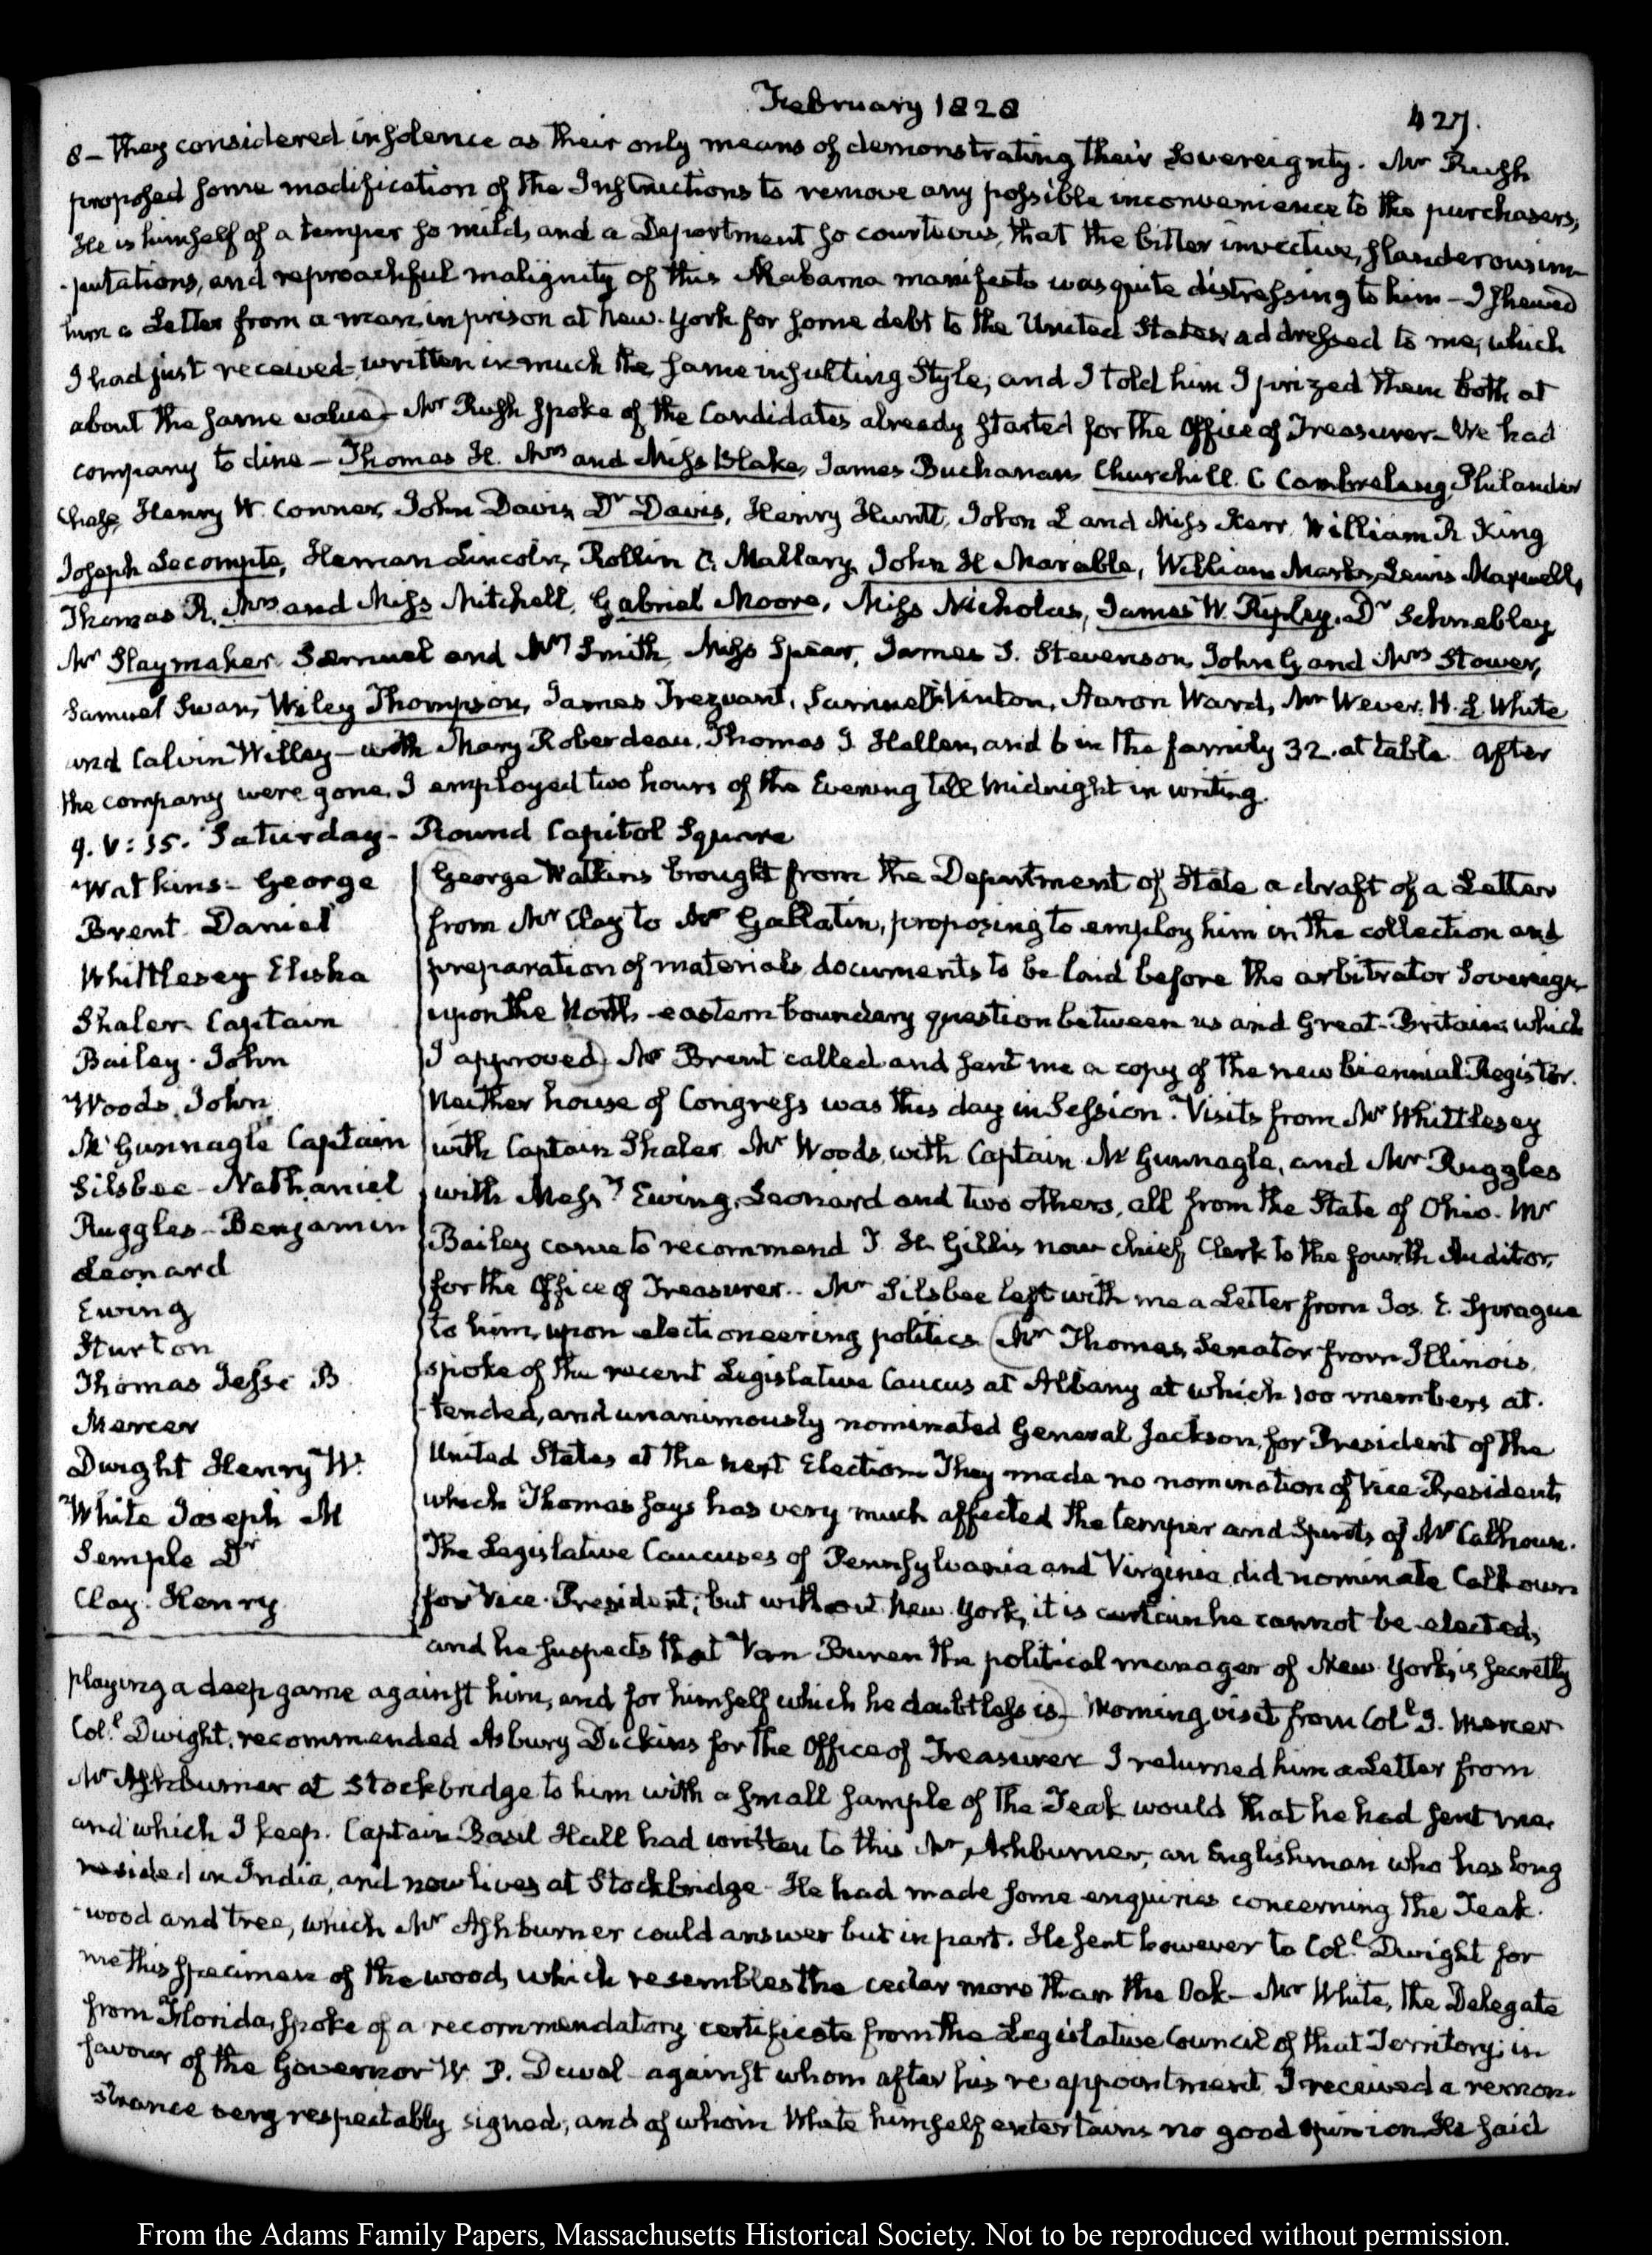 February 1828
427.
8 – They considered insolence as their only means of demonstrating their Sovereignty. Mr Rush
proposed some modification of the Instructions to remove any possible inconvenience to the purchasers,
He is himself of a temper so mild, and a Deportment so courteous, that the bitter invective, slanderous im-
-putations, and reproachful malignity of this Alabama manifesto was quite distressing to him – I shewed
him a Letter from a man, in prison at New-York for some debt to the United States, addressed to me, which
I had just received, written in much the same insulting Style, and I told him I prized them both at
about the same value) – Mr Rush spoke of the Candidates already started for the Office of Treasurer – We had
company to dine – Thomas H. Mrs and Miss Blake, James Buchanan, Churchill. C Cambreleng, Philander
Chase, Henry W. Conner, John Davis, Dr Davis, Henry Huntt, John L and Miss Kerr, William R King
Joseph Lecompte, Heman Lincoln, Rollin C. Mallary, John H Marable, William Marks, Lewis Maxwell,
Thomas R. Mrs and Miss Mitchell, Gabriel Moore, Miss Nicholas, James W. Ripley, Dr Schnebley
Mr Slaymaker, Samuel and Mrs Smith, Miss Spear, James S. Stevenson, John G and Mrs Stower,
Samuel Swan, Wiley Thompson, James Trezvant, Samuel F Vinton, Aaron Ward, Mr Wever, H. L White
and Calvin Willey – with Mary Roberdeau, Thomas J. Hellen, and 6 in the family 32. at table. After
the company were gone, I employed two hours of the Evening till Midnight in writing.
9. V: 15. Saturday – Round Capitol Square
Watkins – George
Brent. Daniel
Whittlesey Elisha
Shaler Captain
Bailey. John
Woods. John
Mc Gunnagle Captain
Silsbee – Nathaniel
Ruggles – Benjamin
Leonard
Ewing
Sturton
Thomas Jesse B
Mercer
Dwight Henry W.
White Joseph M
Semple Dr
Clay. Henry
(George Watkins brought from the Department of State a draft of a Letter
from Mr Clay to Mr Gallatin, proposing to employ him in the collection and
preparation of materials, documents to be laid before the arbitrator Sovereign
upon the North-eastern boundary question between us and Great-Britain, which
I approved) Mr Brent called and sent me a copy of the new biennial Register.
Neither house of Congress was this day in Session. Visits from Mr Whittlesey
with Captain Shaler, Mr Woods, with Captain Mc Gunnagle, and Mr Ruggles
with Messrs Ewing, Leonard and two others, all from the State of Ohio. Mr
Bailey came to recommend T. H. Gillis now chief Clerk to the fourth Auditor,
for the Office of Treasurer. – Mr Silsbee left with me a Letter from Jos. E. Sprague
to him, upon electioneering politics (Mr Thomas, Senator from Illinois,
spoke of the recent Legislative Caucus at Albany at which 100 members at-
-tended, and unanimously nominated General Jackson, for President of the
United States at the next Election. They made no nomination of Vice-President,
which Thomas says has very much affected the temper and Spirits of Mr Calhoun.
The Legislative Caucuses of Pennsylvania and Virginia did nominate Calhoun
for Vice-President; but without New-York, it is certain he cannot be elected,
and he suspects that Van Buren the political manager of New-York, is secretly
playing a deep game against him, and for himself which he doubtless is) – Morning visit from Coll J. Mercer
Coll Dwight, recommended Asbury Dickins for the Office of Treasurer. I returned him a Letter from
Mr Ashburner at Stockbridge to him with a small sample of the Teak would that he had sent me,
and which I keep. Captain Basil Hall had written to this Mr Ashburner, an Englishman who has long
resided in India, and now lives at Stockbridge – He had made some enquiries concerning the Teak-
-wood and tree, which Mr Ashburner could answer but in part. He sent however to Coll Dwight for
me this specimen of the wood, which resembles the cedar more than the Oak – Mr White, the Delegate
from Florida, spoke of a recommendatory certificate from the Legislative Council of that Territory, in
favour of the Governor W. P. Duval – against whom after his reappointment I received a remon-
strance very respectably signed, and of whom White himself entertains no good opinion. He said
From the Adams Family Papers, Massachusetts Historical Society. Not to be reproduced without permission.